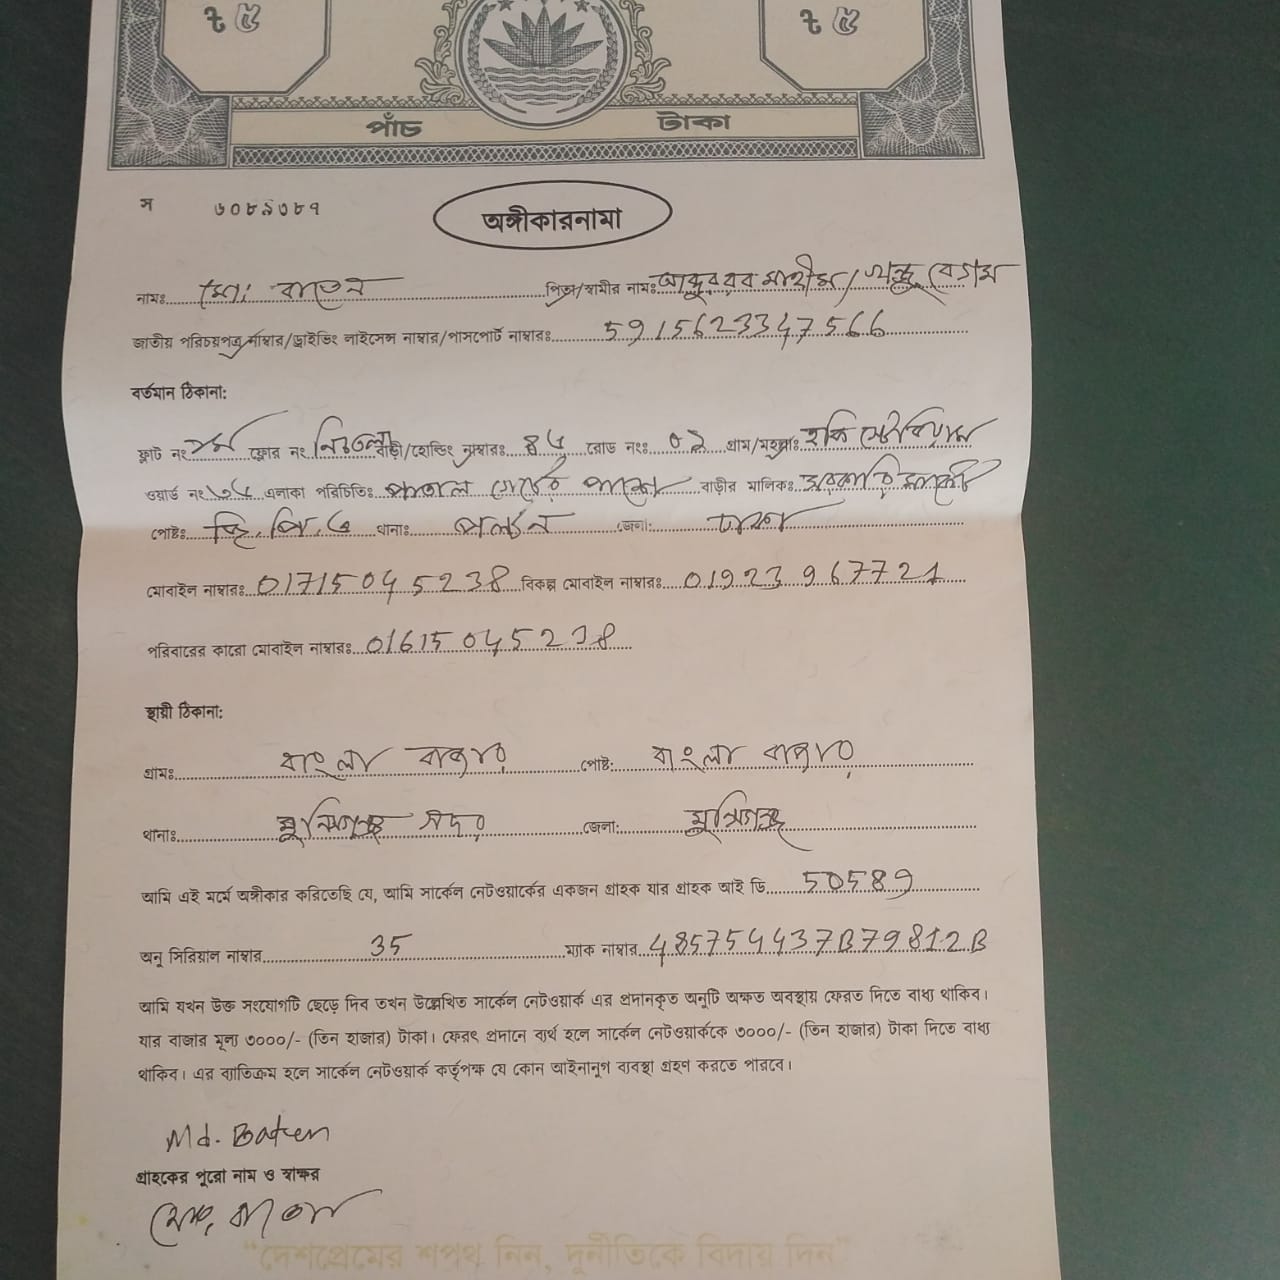 ৳ ৫ ৳ ৫
পাঁচ টাকা
স ৬০৮৯৩৮৭
অঙ্গীকারনামা
নামঃ মোঃ বাতেন পিতা/স্বামীর নাম: বেগম
জাতীয় পরিচয়পত্র নাম্বার/ড্রাইভিং লাইসেন্স নাম্বার/পাসপোর্ট নাম্বারঃ 5915623347566
বর্তমান ঠিকানা:
ফ্লাট নং ফ্লোর নং নিচতলা বাড়ী/হোল্ডিং নাম্বারঃ রোড নংঃ গ্রাম/মহল্লাঃ
ওয়ার্ড নং এলাকা পরিচিতিঃ পাতাল গেটের পাশে বাড়ীর মালিকঃ
পোষ্টঃ জি.পি.ও থানাঃ পল্টন জেলা: ঢাকা
মোবাইল নাম্বারঃ 01715045238 বিকল্প মোবাইল নাম্বারঃ 01923967721
পরিবারের কারো মোবাইল নাম্বারঃ 01615045238
স্থায়ী ঠিকানা:
গ্রামঃ বাংলা বাজার পোষ্ট: বাংলা বাজার
থানাঃ মুন্সিগঞ্জ সদর জেলা: মুন্সিগঞ্জ
আমি এই মর্মে অঙ্গীকার করিতেছি যে, আমি সার্কেল নেটওয়ার্কের একজন গ্রাহক যার গ্রাহক আই ডি 50589
অনু সিরিয়াল নাম্বার 35 ম্যাক নাম্বার 485754437B79812B
আমি যখন উক্ত সংযোগটি ছেড়ে দিব তখন উল্লেখিত সার্কেল নেটওয়ার্ক এর প্রদানকৃত অনুটি অক্ষত অবস্থায় ফেরত দিতে বাধ্য থাকিব।
যার বাজার মূল্য ৩০০০/- (তিন হাজার) টাকা। ফেরৎ প্রদানে ব্যর্থ হলে সার্কেল নেটওয়ার্ককে ৩০০০/- (তিন হাজার) টাকা দিতে বাধ্য
থাকিব। এর ব্যাতিক্রম হলে সার্কেল নেটওয়ার্ক কর্তৃপক্ষ যে কোন আইনানুগ ব্যবস্থা গ্রহণ করতে পারবে।
Md. Baten
গ্রাহকের পুরো নাম ও স্বাক্ষর
মোঃ বাতেন
"দেশপ্রেমের শপথ নিন, দুর্নীতিকে বিদায় দিন"